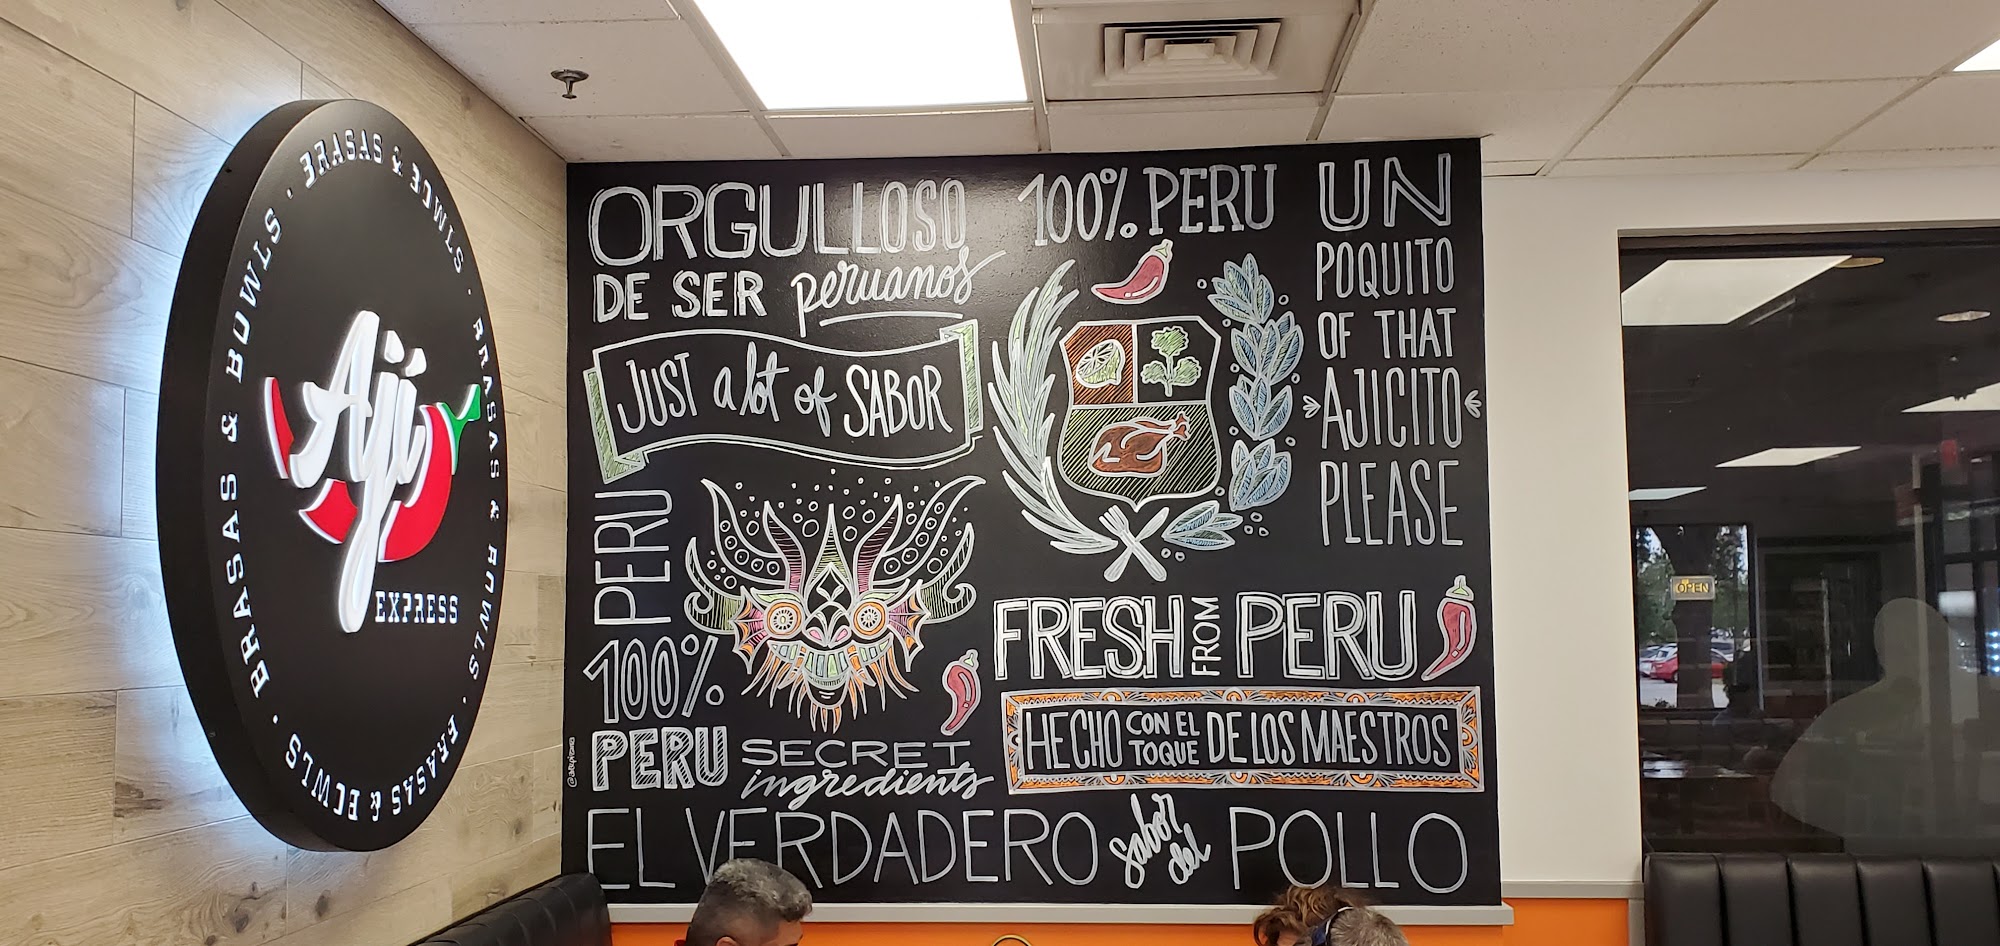 BRASAS & BOWLS · BRASAS & BOWLS · BRASAS & BOWLS · BRASAS & BOWLS ·
Aji
EXPRESS
ORGULLOSO
DE SER peruanos
JUST a lot of SABOR
PERU
100%
PERU
SECRET
ingredients
100% PERU
UN
POQUITO
OF THAT
AJICITO
PLEASE
FRESH FROM PERU
HECHO CON EL TOQUE DE LOS MAESTROS
EL VERDADERO sabor del POLLO
OPEN